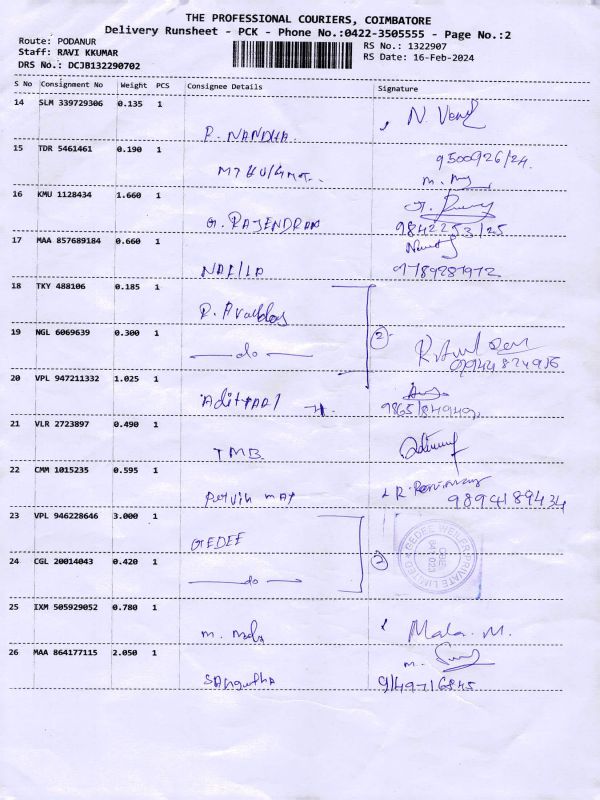 THE PROFESSIONAL COURIERS, COIMBATORE
Delivery Runsheet - PCK - Phone No.:0422-3505555 - Page No.:2
Route: PODANUR
Staff: RAVI KKUMAR
DRS No.: DCJB132290702
RS No.: 1322907
RS Date: 16-Feb-2024
S No Consignment No Weight PCS Consignee Details Signature
14 SLM 339729306 0.135 1
P. NANDHA
15 TDR 5461461 0.190 1
9500926124
16 KMU 1128434 1.660 1
G. RAJENDRAN
9842253125
17 MAA 857689184 0.660 1
9789287972
18 TKY 488106 0.185 1
19 NGL 6069639 0.300 1
do
2
20 VPL 947211332 1.025 1
21 VLR 2723897 0.490 1
TMB
22 CMM 1015235 0.595 1
9894189434
23 VPL 946228646 3.000 1
GEDEE
24 CGL 20014043 0.420 1
do
GEDEE WEILER PRIVATE LIMITED
CBE
641 023
25 IXM 505929052 0.780 1
Mala. M.
26 MAA 864177115 2.050 1
Sangutha